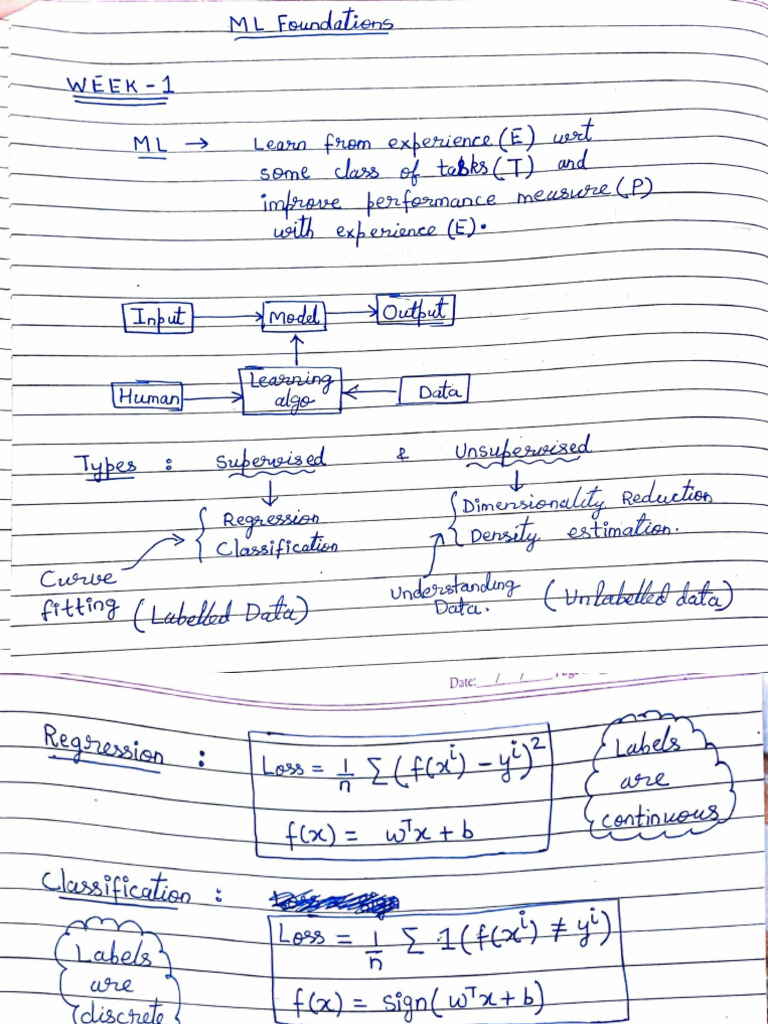 ML Foundations
WEEK - 1
ML → Learn from experience (E) wrt
some class of tasks (T) and
improve performance measure (P)
with experience (E).
Input → Model → Output
Human → Learning algo ← Data
Types : Supervised & Unsupervised
Regression
Classification
Dimensionality Reduction
Density estimation.
Curve
fitting (Labelled Data)
Understanding
Data. (Unlabelled data)
Date: __/__/__
Regression :
Loss = 1/n Σ (f(xⁱ) - yⁱ)²
f(x) = wᵀx + b
Labels
are
continuous
Classification :
Loss = 1/n Σ 1(f(xⁱ) ≠ yⁱ)
f(x) = sign(wᵀx + b)
Labels
are
discrete